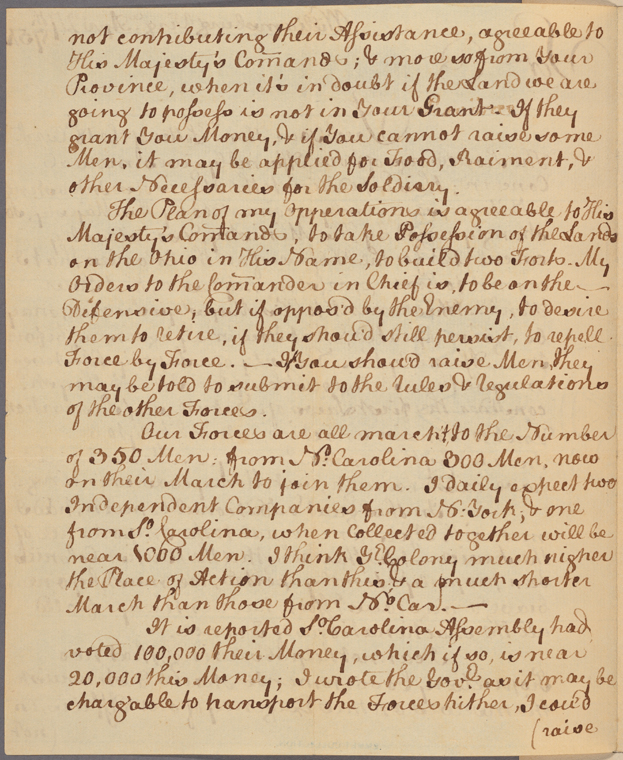 not contributing their Assistance, agreeable to
His Majesty's Comands; & more so from Your
Province, when it's in doubt if the Land we are
going to possess is not in Your Grant. If they
grant You Money, & if You cannot raise some
Men, it may be applied for Food, Raiment, &
other Necessaries for the Soldiery.
The Plan of my Opperations is agreeable to His
Majesty's Comands, to take Possession of the Lands
on the Ohio in His Name, to build two Forts. My
Orders to the Comander in Chief is, to be on the —
Defensive, but if oppos'd by the Enemy, to desire
them to retire, if they shou'd still persist, to repell
Force by Force. — If You shou'd raise Men, they
may be told to submit to the rules & regulations
of the other Forces.
Our Forces are all march'd to the Number
of 350 Men: from No. Carolina 300 Men, now
on their March to join them. I daily expect two
Independent Companies from N. York, & one
from So. Carolina, when collected together will be
near 1000 Men. I think Yr. Colony much nigher
the Place of Action than this & a much shorter
March than those from No. Car. —
It is reported So. Carolina Assembly had
voted 100,000 their Money, which if so, is near
20,000 this Money; I wrote the Govr. as it may be
chargable to transport the Forces hither, I cou'd
(raise